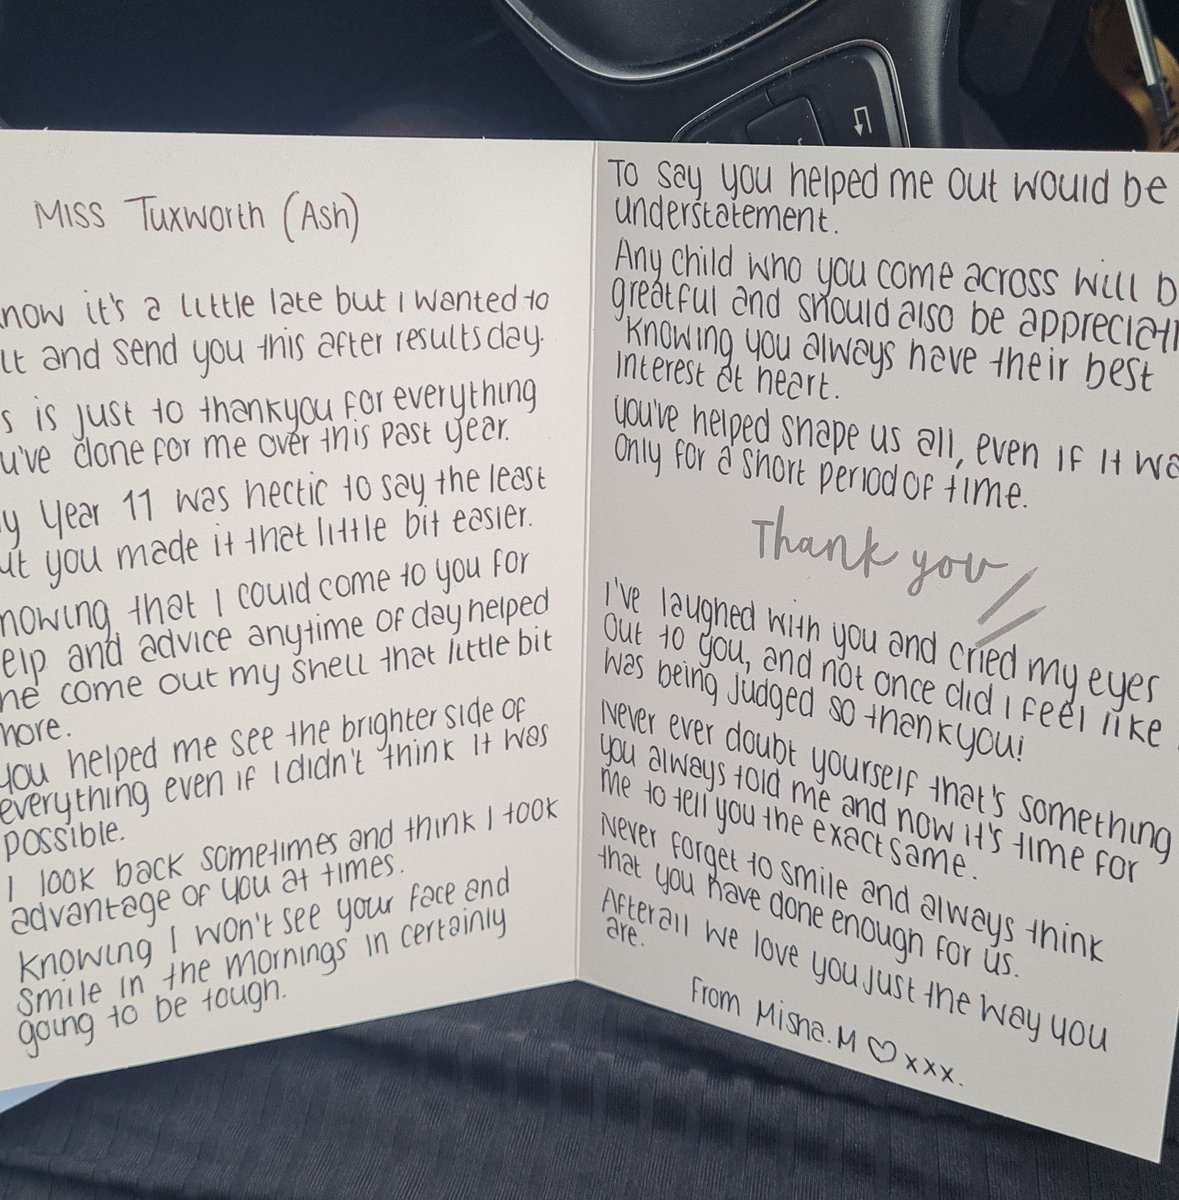 Miss Tuxworth (Ash)
now it's a little late but I wanted to
and send you this after results day.
is just to thankyou for everything
u've done for me over this past year.
y Year 11 was hectic to say the least
ut you made it that little bit easier.
nowing that I could come to you for
elp and advice anytime of day helped
me come out my shell that little bit
more.
you helped me see the brighter side of
everything even if I didn't think it was
possible.
I look back sometimes and think I took
advantage of you at times.
Knowing I won't see your face and
smile in the mornings in certainly
going to be tough.
To say you helped me out would be
understatement.
Any child who you come across will b
greatful and should also be appreciati
Knowing you always have their best
interest at heart.
you've helped shape us all, even if it wa
only for a short period of time.
Thank you//
I've laughed with you and cried my eyes
out to you, and not once did I feel like
was being judged so thankyou!
Never ever doubt yourself that's something
you always told me and now it's time for
me to tell you the exact same.
Never forget to smile and always think
that you have done enough for us.
Afterall we love you just the way you
are.
From Misha.M ♡ xxx.